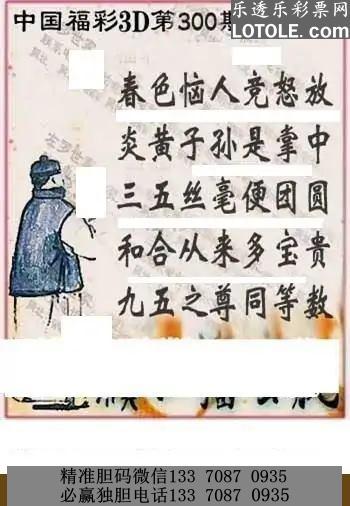 乐透乐彩票网
中国福彩3D第300期
LOTOLE.COM
春色恼人竞怒放
炎黄子孙是掌中
三五丝毫便团圆
和合从来多宝贵
九五之尊同等数
精准胆码微信133 7087 0935
必赢独胆电话133 7087 0935